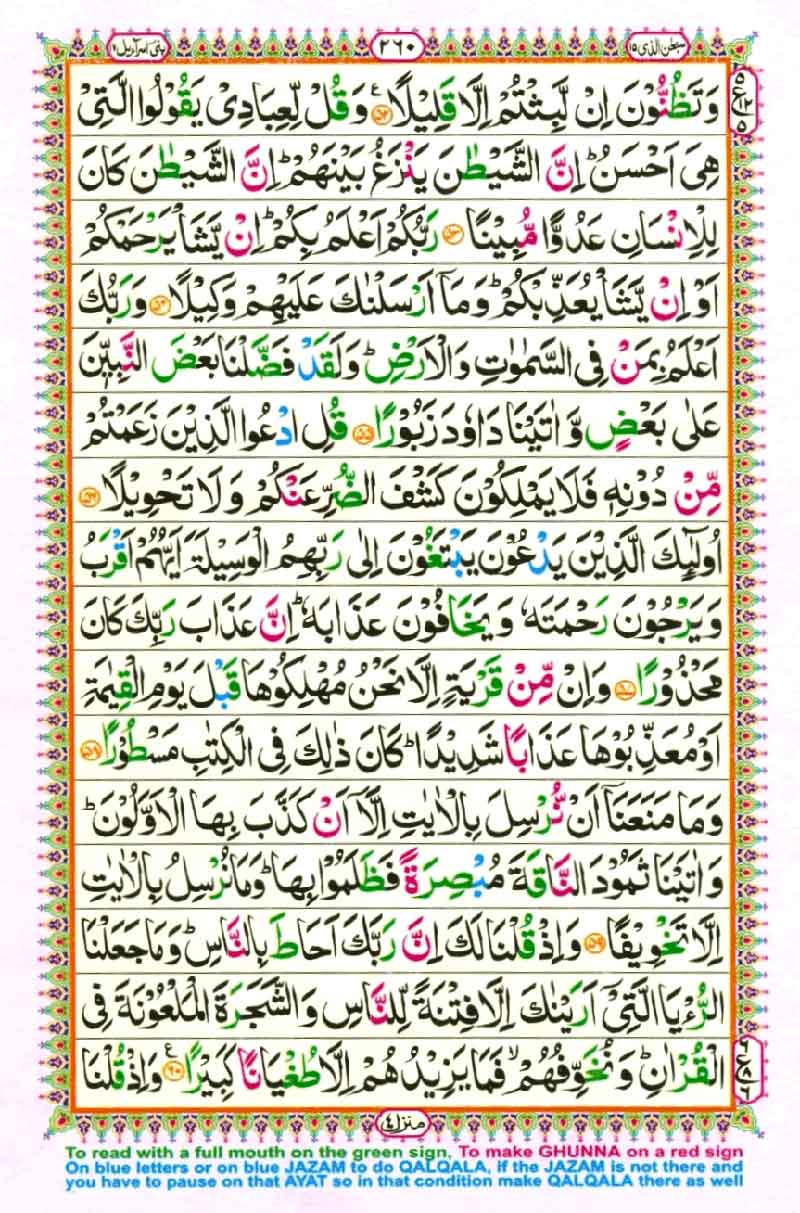 بنی اسرآءیل ۱۷
۲۶۰
سبحٰن الذی ۱۵
وَتَظُنُّوْنَ اِنْ لَّبِثْتُمْ اِلَّا قَلِيْلًا ﴿۵۲﴾ وَقُلْ لِّعِبَادِىْ يَقُوْلُوا الَّتِىْ
هِىَ اَحْسَنُ ؕ اِنَّ الشَّيْطٰنَ يَنْزَغُ بَيْنَهُمْ ؕ اِنَّ الشَّيْطٰنَ كَانَ
لِلْاِنْسَانِ عَدُوًّا مُّبِيْنًا ﴿۵۳﴾ رَبُّكُمْ اَعْلَمُ بِكُمْ ؕ اِنْ يَّشَاْ يَرْحَمْكُمْ
اَوْ اِنْ يَّشَاْ يُعَذِّبْكُمْ ؕ وَمَاۤ اَرْسَلْنٰكَ عَلَيْهِمْ وَكِيْلًا ﴿۵۴﴾ وَرَبُّكَ
اَعْلَمُ بِمَنْ فِى السَّمٰوٰتِ وَالْاَرْضِ ؕ وَلَقَدْ فَضَّلْنَا بَعْضَ النَّبِيّٖنَ
عَلٰى بَعْضٍ وَّاٰتَيْنَا دَاوٗدَ زَبُوْرًا ﴿۵۵﴾ قُلِ ادْعُوا الَّذِيْنَ زَعَمْتُمْ
مِّنْ دُوْنِهٖ فَلَا يَمْلِكُوْنَ كَشْفَ الضُّرِّ عَنْكُمْ وَلَا تَحْوِيْلًا ﴿۵۶﴾
اُولٰٓئِكَ الَّذِيْنَ يَدْعُوْنَ يَبْتَغُوْنَ اِلٰى رَبِّهِمُ الْوَسِيْلَةَ اَيُّهُمْ اَقْرَبُ
وَيَرْجُوْنَ رَحْمَتَهٗ وَيَخَافُوْنَ عَذَابَهٗ ؕ اِنَّ عَذَابَ رَبِّكَ كَانَ
مَحْذُوْرًا ﴿۵۷﴾ وَاِنْ مِّنْ قَرْيَةٍ اِلَّا نَحْنُ مُهْلِكُوْهَا قَبْلَ يَوْمِ الْقِيٰمَةِ
اَوْ مُعَذِّبُوْهَا عَذَابًا شَدِيْدًا ؕ كَانَ ذٰلِكَ فِى الْكِتٰبِ مَسْطُوْرًا ﴿۵۸﴾
وَمَا مَنَعَنَاۤ اَنْ نُّرْسِلَ بِالْاٰيٰتِ اِلَّاۤ اَنْ كَذَّبَ بِهَا الْاَوَّلُوْنَ ؕ
وَاٰتَيْنَا ثَمُوْدَ النَّاقَةَ مُبْصِرَةً فَظَلَمُوْا بِهَا ؕ وَمَا نُرْسِلُ بِالْاٰيٰتِ
اِلَّا تَخْوِيْفًا ﴿۵۹﴾ وَاِذْ قُلْنَا لَكَ اِنَّ رَبَّكَ اَحَاطَ بِالنَّاسِ ؕ وَمَا جَعَلْنَا
الرُّءْيَا الَّتِىْۤ اَرَيْنٰكَ اِلَّا فِتْنَةً لِّلنَّاسِ وَالشَّجَرَةَ الْمَلْعُوْنَةَ فِى
الْقُرْاٰنِ ؕ وَنُخَوِّفُهُمْ ۙ فَمَا يَزِيْدُهُمْ اِلَّا طُغْيَانًا كَبِيْرًا ﴿۶۰﴾ وَاِذْ قُلْنَا
منزل ۴
To read with a full mouth on the green sign, To make GHUNNA on a red sign
On blue letters or on blue JAZAM to do QALQALA, if the JAZAM is not there and
you have to pause on that AYAT so in that condition make QALQALA there as well